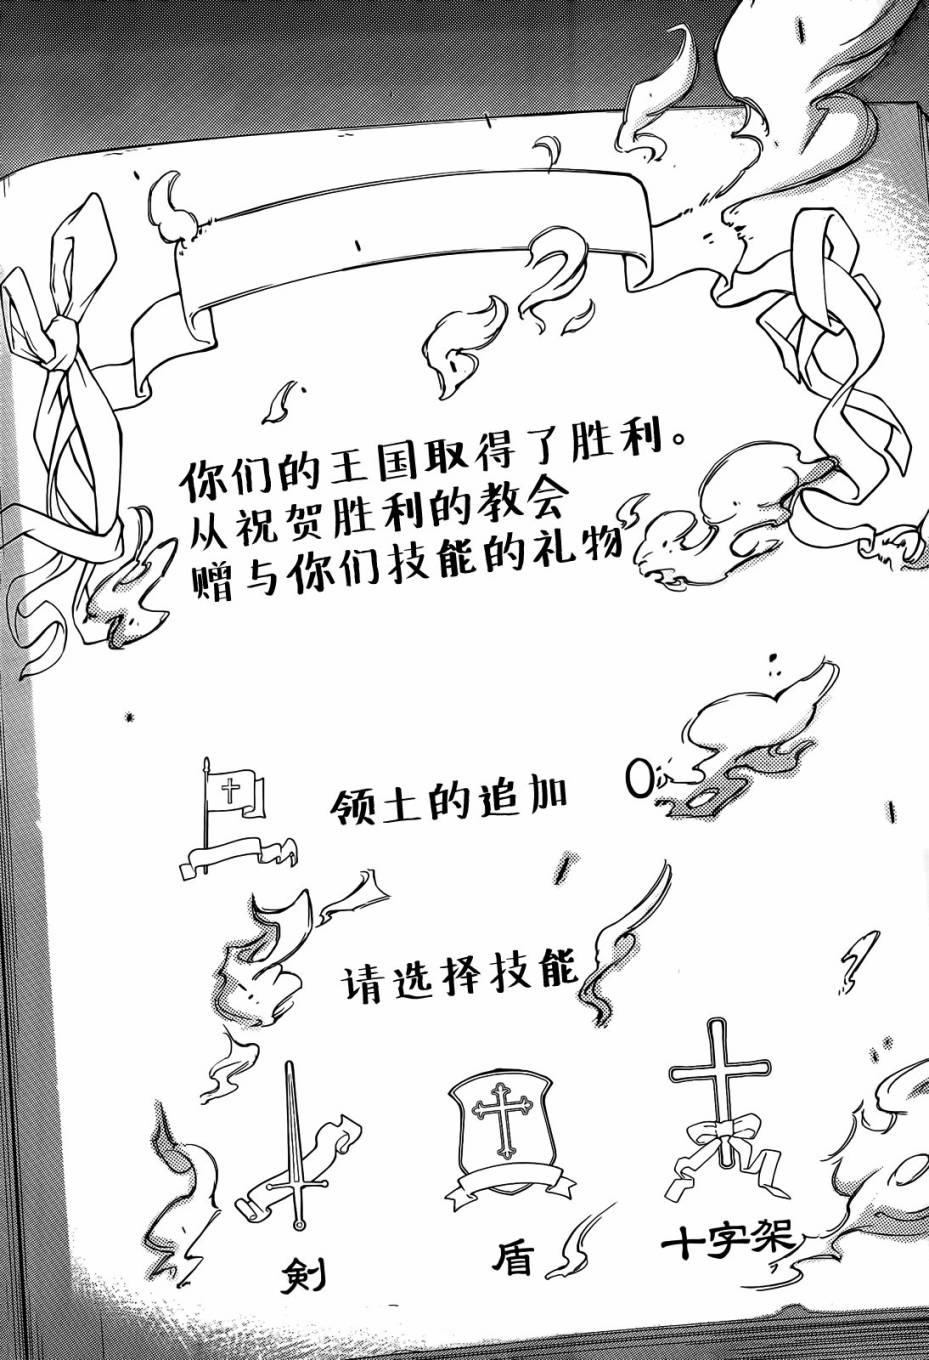 你们的王国取得了胜利。
从祝贺胜利的教会
赠与你们技能的礼物
领土的追加 0
请选择技能
剣 盾 十字架